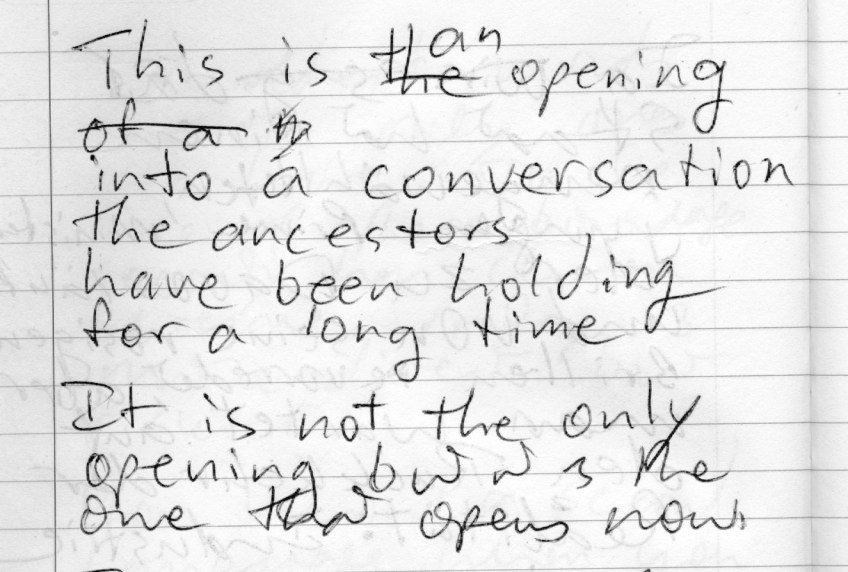 This is the an opening
of a
into a conversation
the ancestors
have been holding
for a long time
It is not the only
opening but it is the
one that opens now.